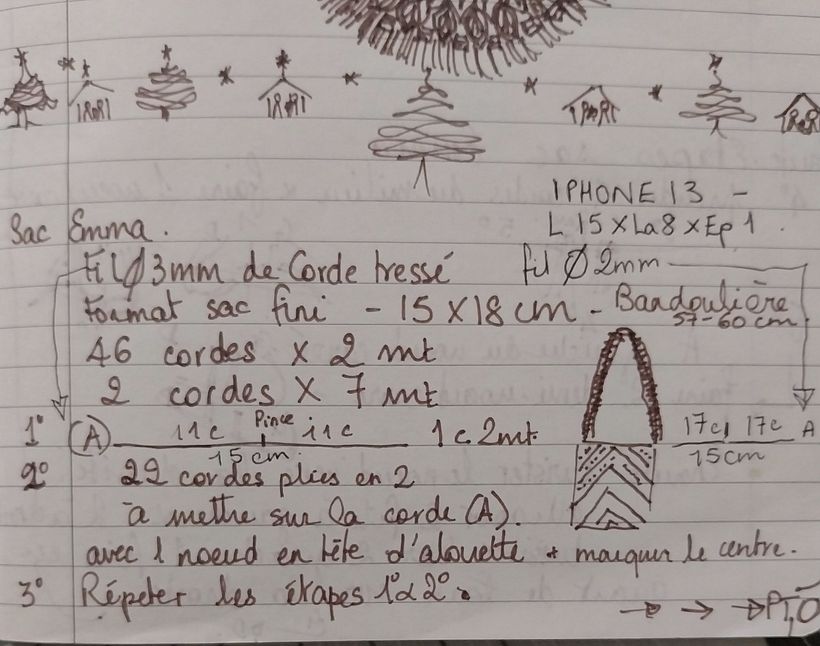 IPHONE 13 -
L 15 x La 8 x Ep 1.
Sac Emma.
Fil Ø 3mm de Corde tressé fil Ø 2mm
Format sac fini - 15 x 18 cm - Bandoulière
57-60 cm
46 cordes x 2 mt
2 cordes x 7 mt
1° (A) 11c Pince 11c 1c 2mt. 17c, 17c A
15cm 15cm
2° 22 cordes plies en 2
à mettre sur la corde (A).
avec 1 noeud en tête d'alouette + marquer le centre.
3° Répéter les étapes 1° & 2°.
PTO